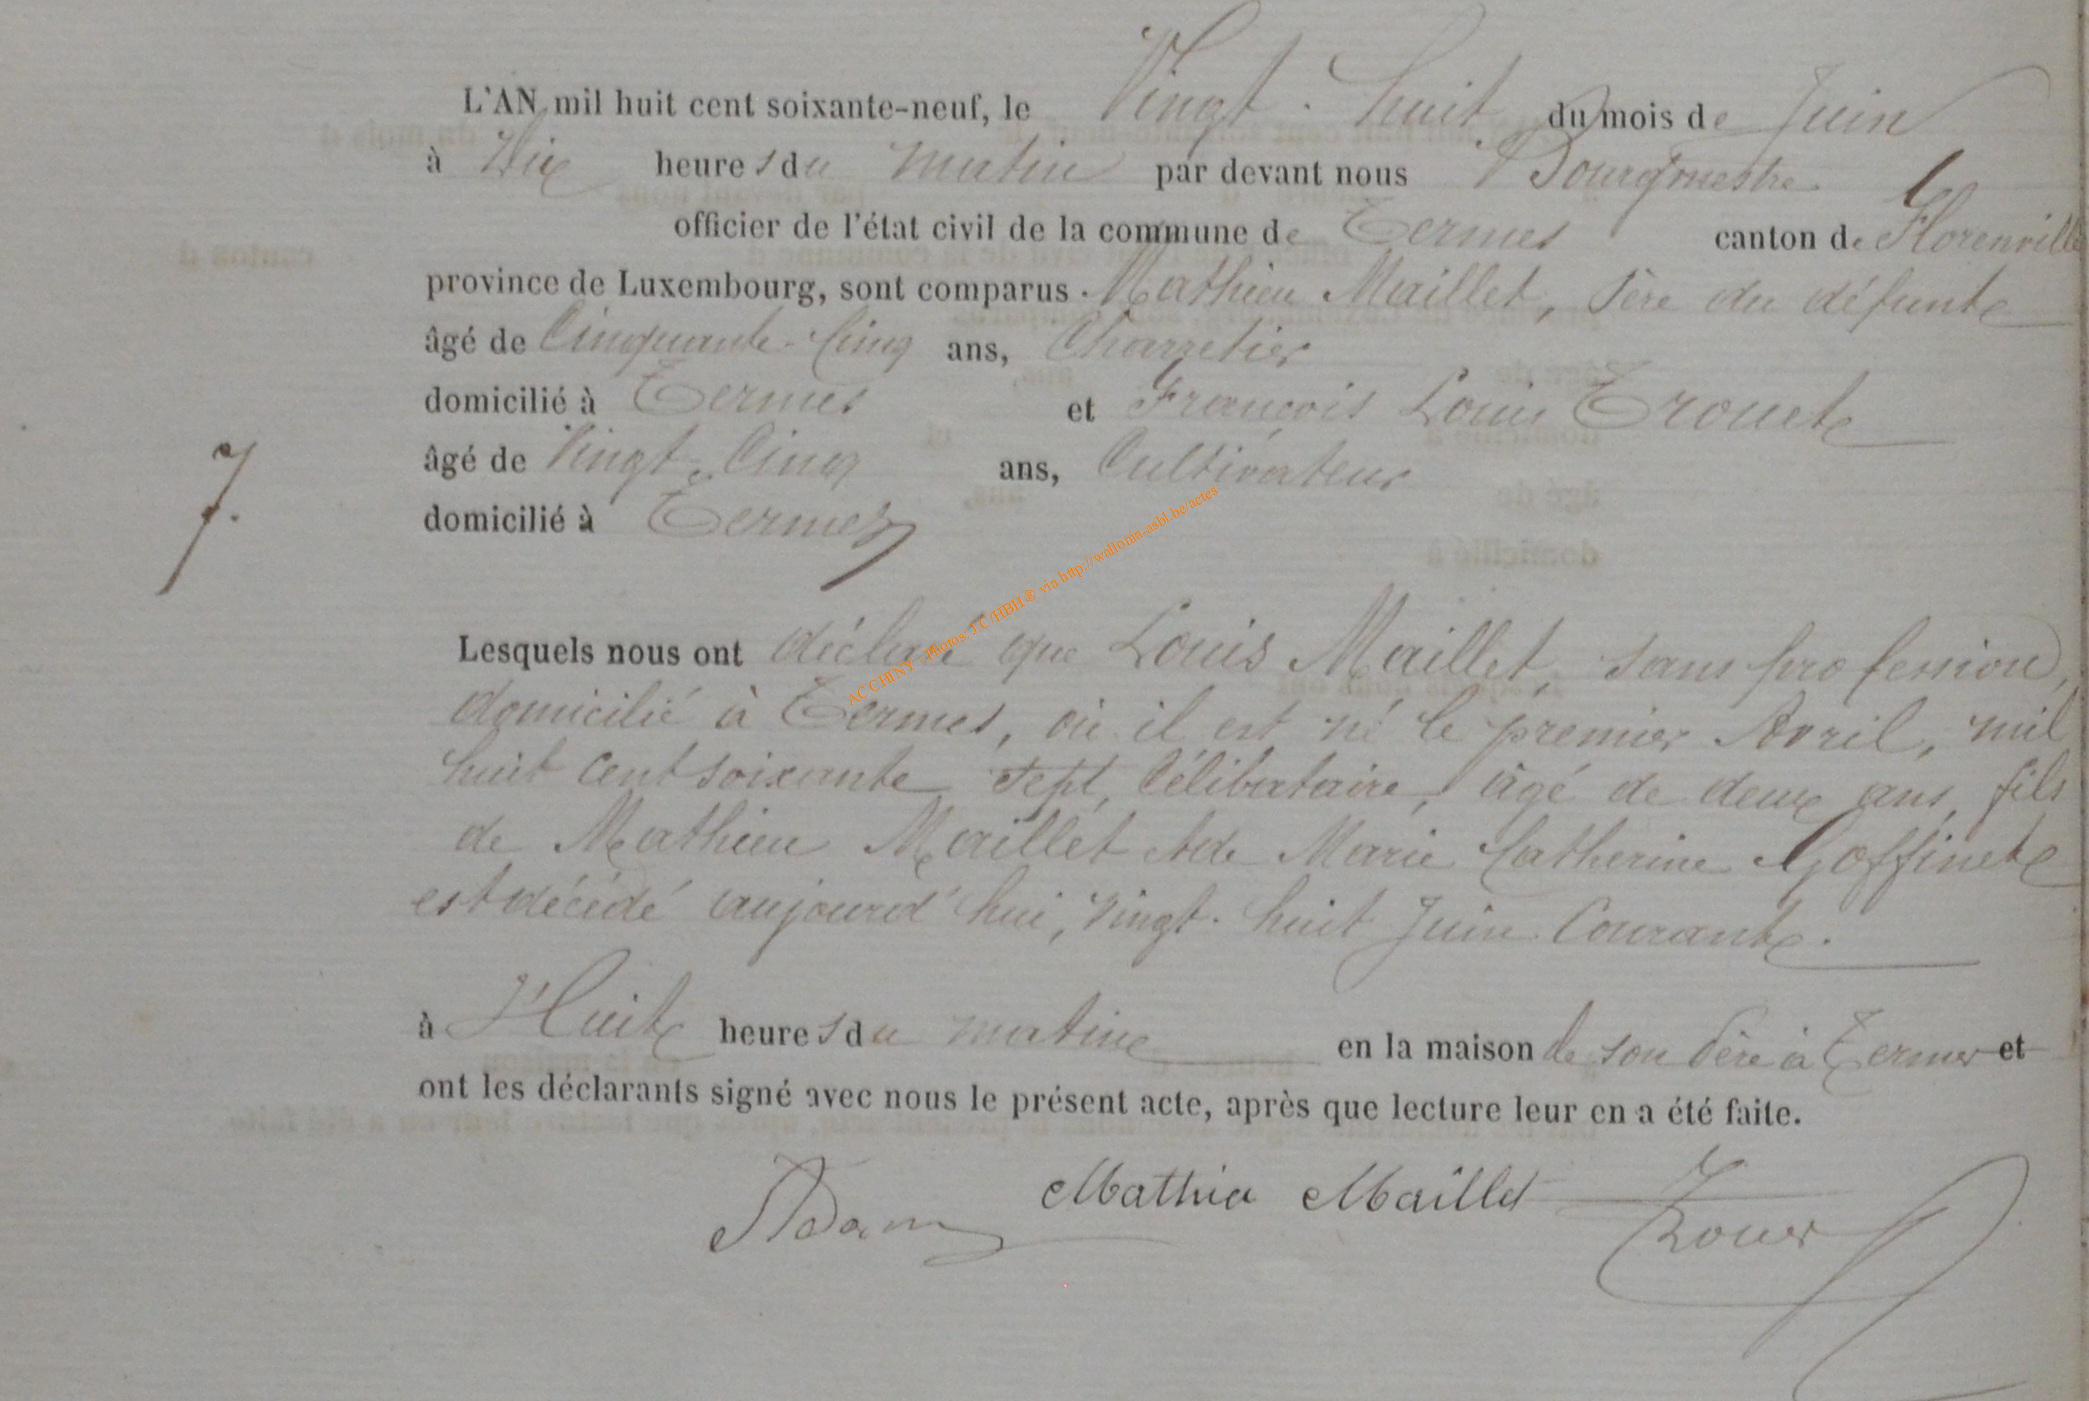 L'AN mil huit cent soixante-neuf, le Vingt-huit du mois de Juin
à Dix heures du matin par devant nous Bourgmestre
officier de l'état civil de la commune de Termes canton de Florenville
province de Luxembourg, sont comparus Mathieu Maillet, père du défunt
âgé de Cinquante-Cinq ans, Charretier
domicilié à Termes et François Louis Trouet
7.
âgé de Vingt-Cinq ans, Cultivateur
domicilié à Termes
AC CHINY - Photos J.C/HBH ® via http://wallonia-asbl.be/actes
Lesquels nous ont déclaré que Louis Maillet, sans profession,
domicilié à Termes, où il est né le premier Avril, mil
huit cent soixante sept, Célibataire, âgé de deux ans, fils
de Mathieu Maillet et de Marie Catherine Goffinet
est décédé aujourd'hui, vingt-huit Juin Courant.
à Huit heures du matin en la maison de son Père à Termes et
ont les déclarants signé avec nous le présent acte, après que lecture leur en a été faite.
Adam Mathieu Maillet